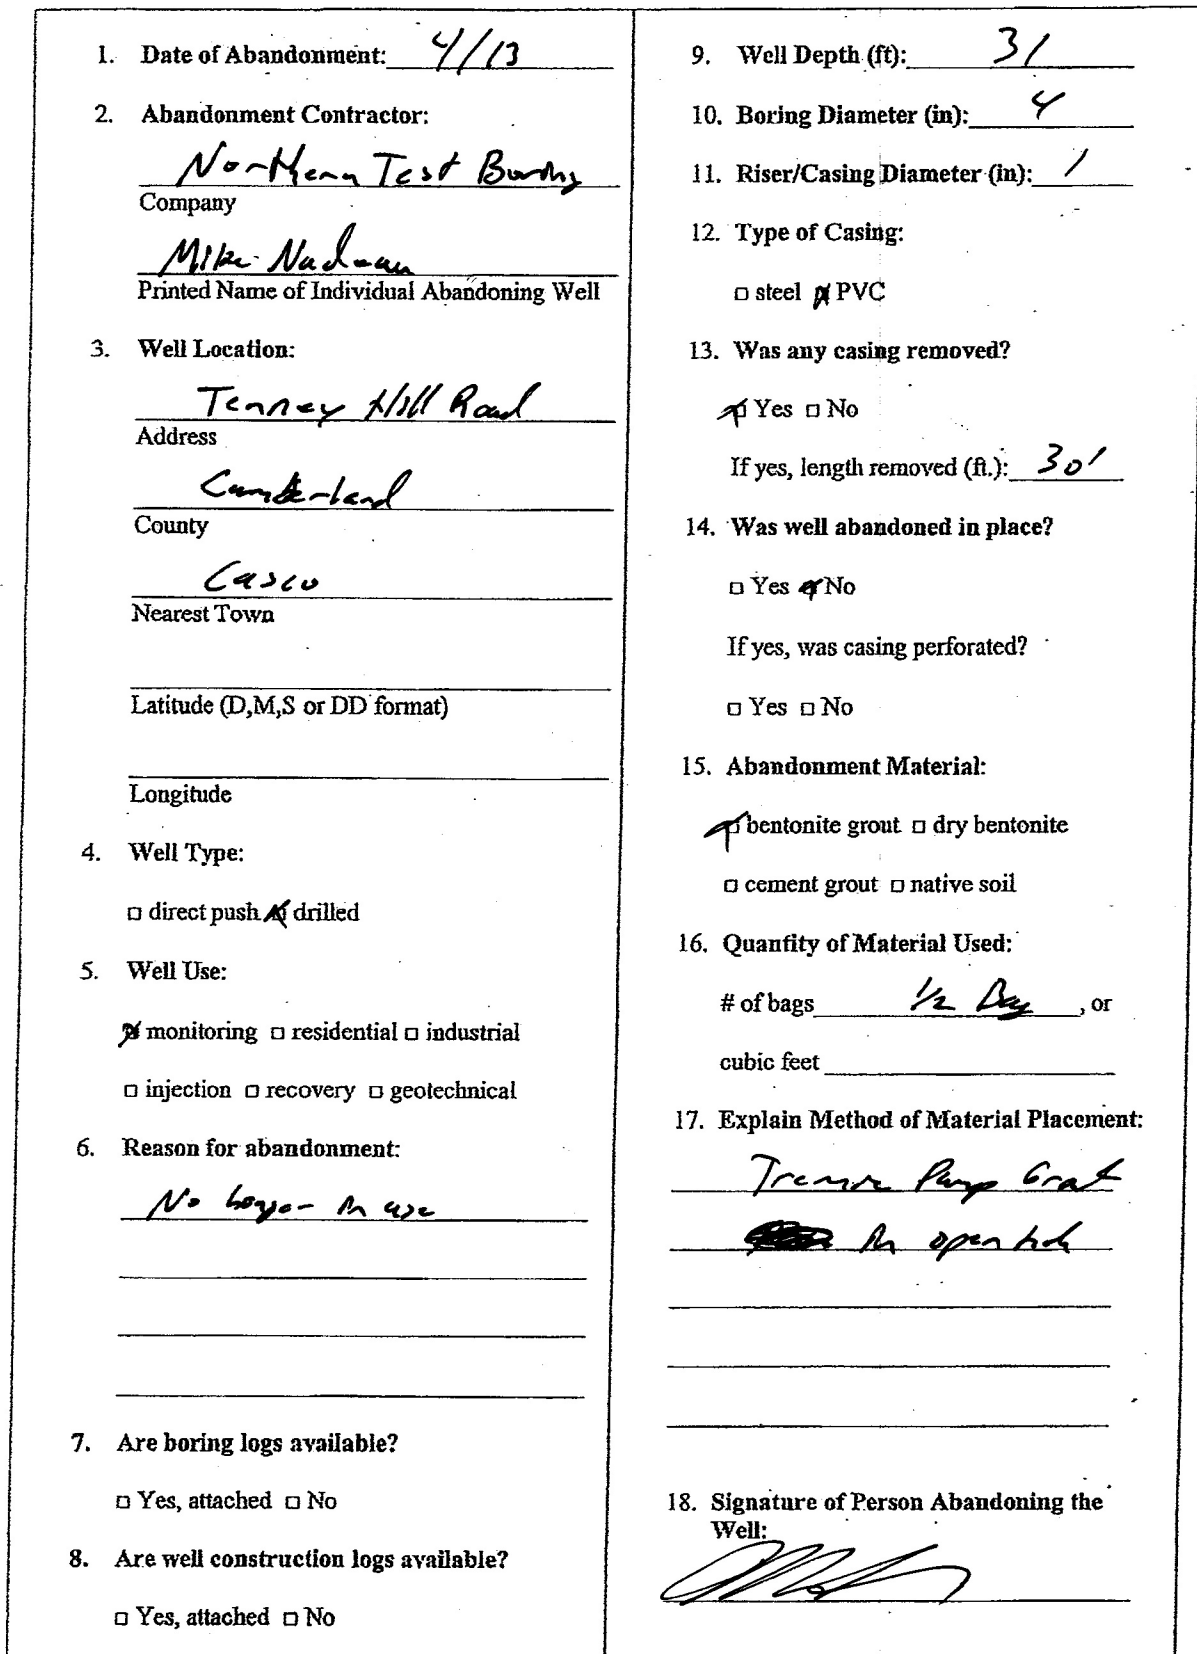 1. Date of Abandonment: 4/13
2. Abandonment Contractor:
Northern Test Boring
Company
Mike Nadeau
Printed Name of Individual Abandoning Well
3. Well Location:
Tenney Hill Road
Address
Cumberland
County
Casco
Nearest Town
Latitude (D,M,S or DD format)
Longitude
4. Well Type:
□ direct push ☒ drilled
5. Well Use:
☒ monitoring □ residential □ industrial
□ injection □ recovery □ geotechnical
6. Reason for abandonment:
No longer in use
7. Are boring logs available?
□ Yes, attached □ No
8. Are well construction logs available?
□ Yes, attached □ No
9. Well Depth (ft): 31
10. Boring Diameter (in): 4
11. Riser/Casing Diameter (in): 1
12. Type of Casing:
□ steel ☒ PVC
13. Was any casing removed?
☒ Yes □ No
If yes, length removed (ft.): 30'
14. Was well abandoned in place?
□ Yes ☒ No
If yes, was casing perforated?
□ Yes □ No
15. Abandonment Material:
☒ bentonite grout □ dry bentonite
□ cement grout □ native soil
16. Quantity of Material Used:
# of bags 1/2 Bag, or
cubic feet
17. Explain Method of Material Placement:
Pump Grout
in open hole
18. Signature of Person Abandoning the
Well: